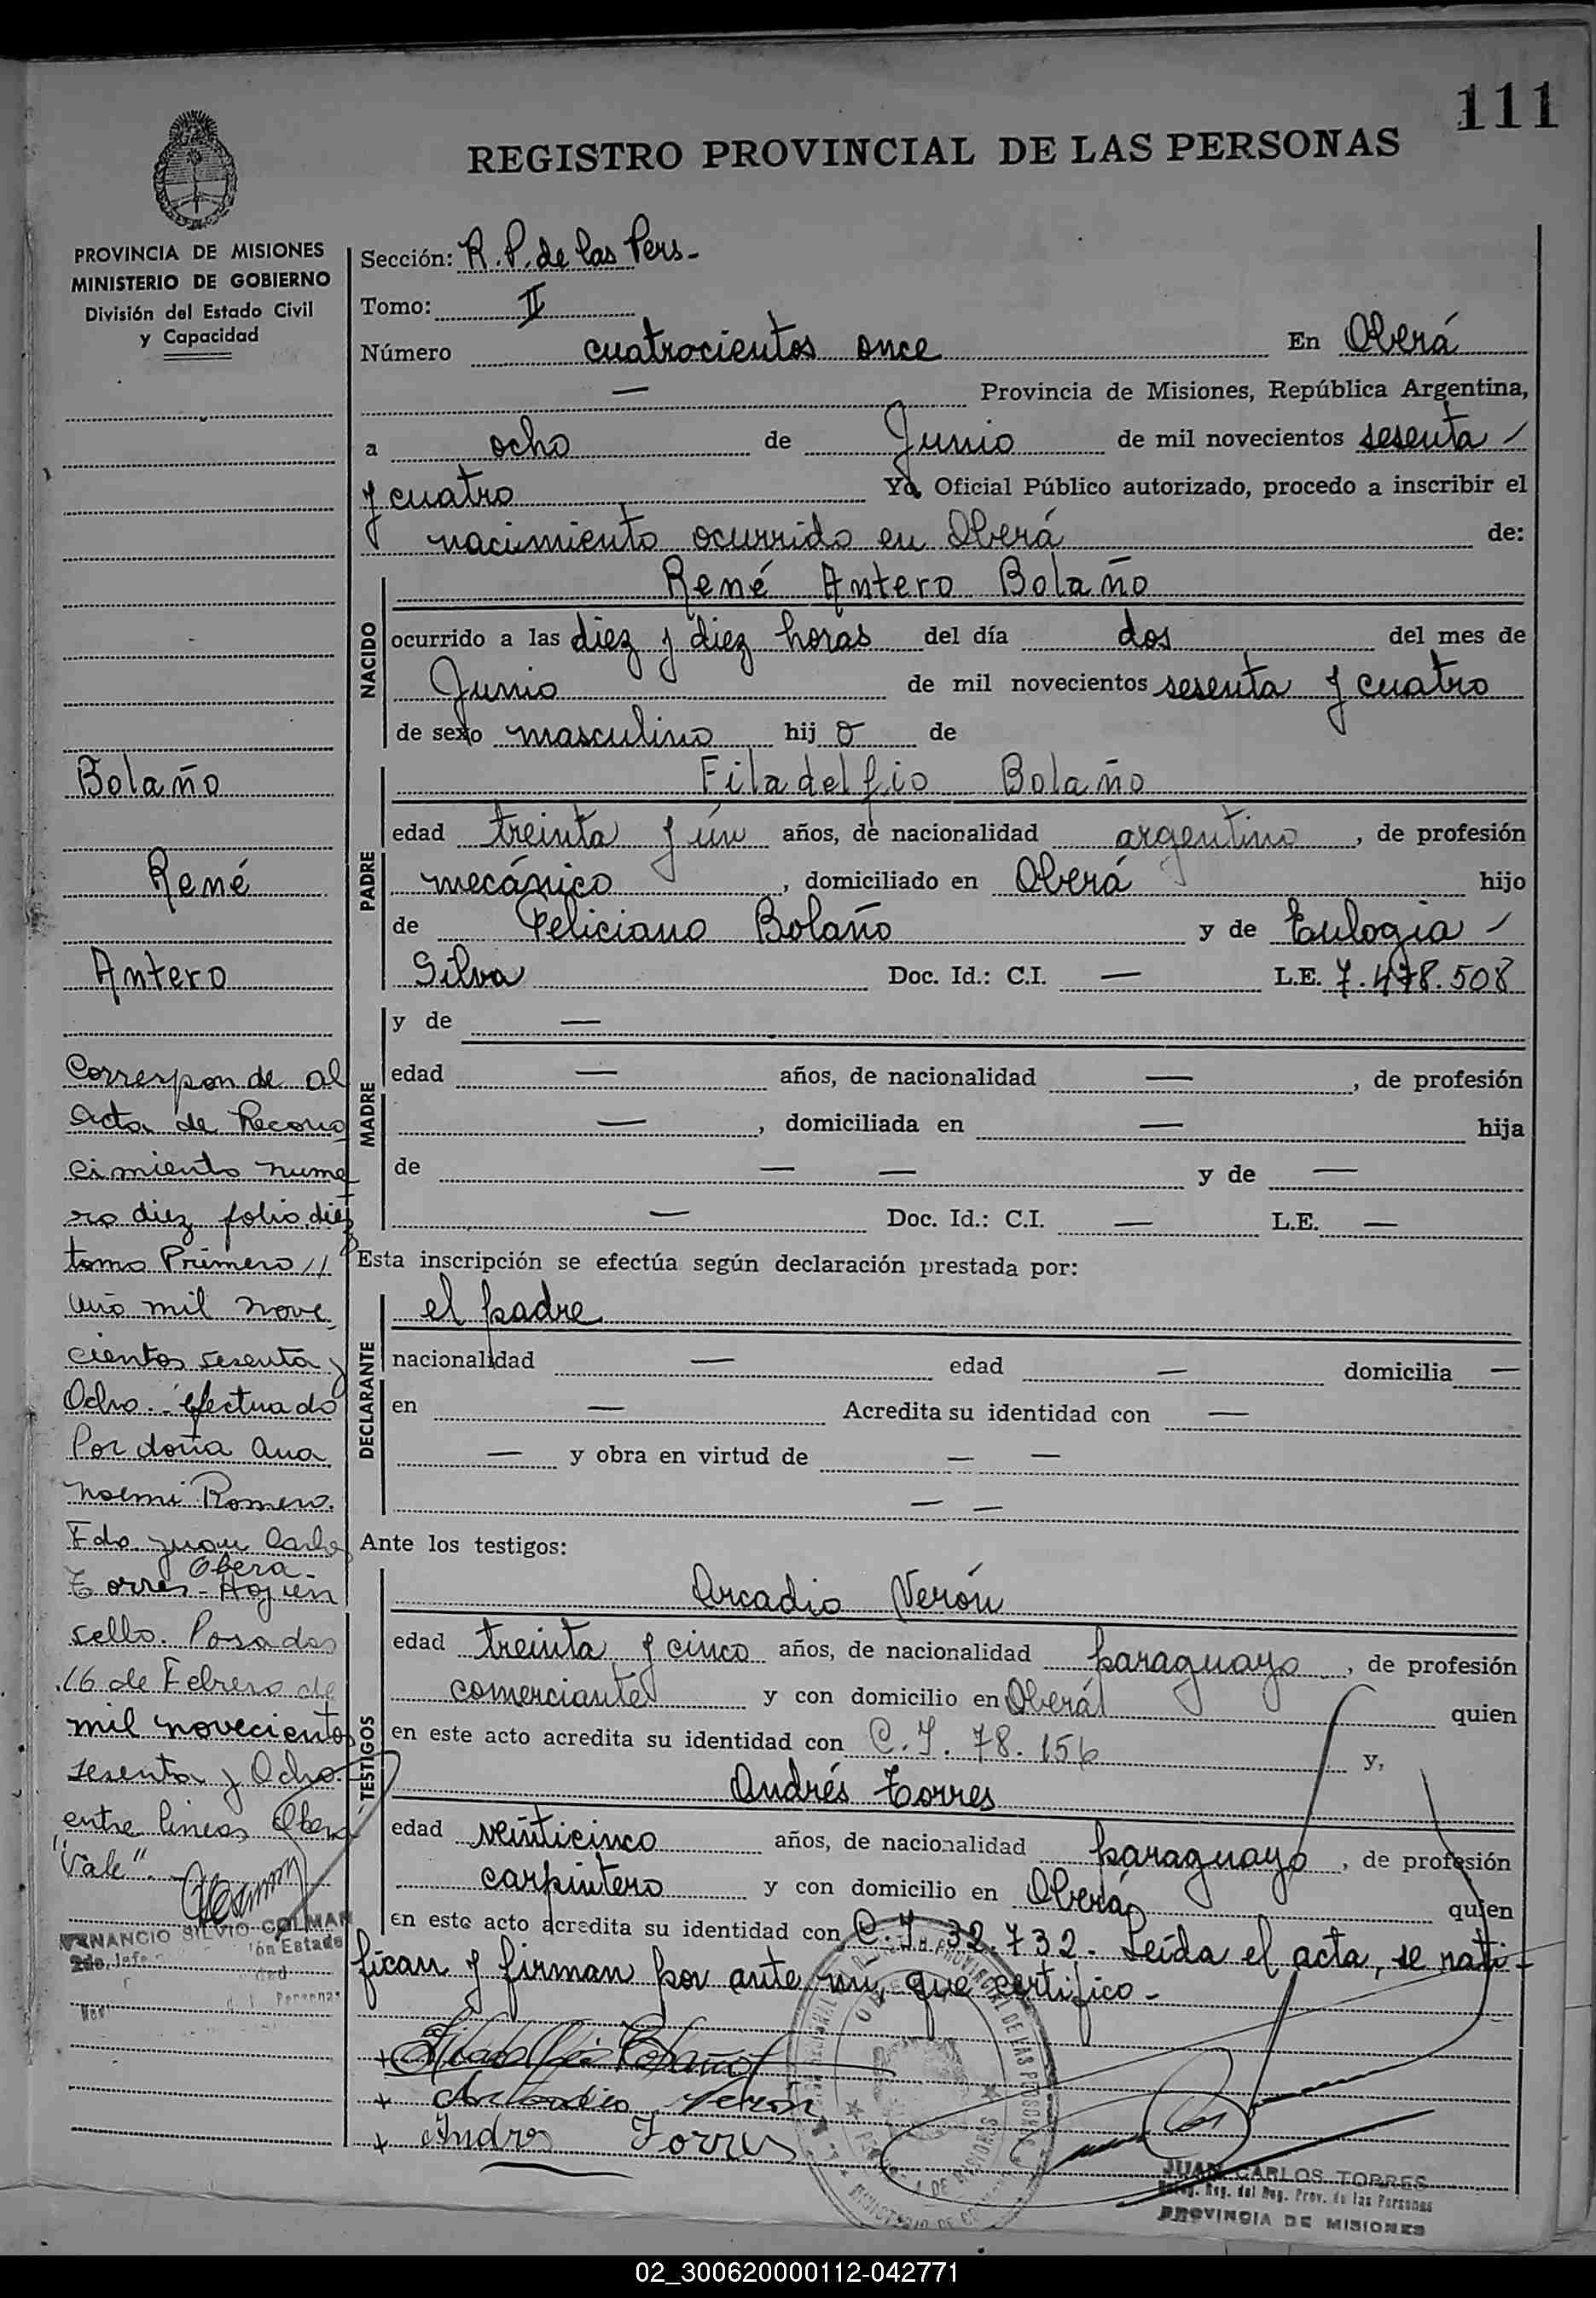 111
REGISTRO PROVINCIAL DE LAS PERSONAS
PROVINCIA DE MISIONES
MINISTERIO DE GOBIERNO
División del Estado Civil
y Capacidad
Bolaño
René
Antero
Corresponde al
Acta de Recono
cimiento nume
ro diez folio diez
tomo Primero //
Año mil nove
cientos sesenta y
Ocho. efectuado
Por doña Ana
Noemi Romero.
Fdo. Juan Carlos
Obera-
Torres - Hay un
sello. Posadas
16 de Febrero de
mil novecientos
sesenta y Ocho.
entre lineas Obera
"Vale".
NANCIO SILVIO COLMAN
2do. Jefe ón Estado
Sección: R. P. de las Pers-
Tomo: II
Número cuatrocientos once En Oberá
— Provincia de Misiones, República Argentina,
a ocho de Junio de mil novecientos sesenta
y cuatro Yo Oficial Público autorizado, procedo a inscribir el
nacimiento ocurrido en Oberá de:
NACIDO
René Antero Bolaño
ocurrido a las diez y diez horas del día dos del mes de
Junio de mil novecientos sesenta y cuatro
de sexo masculino hij o de
PADRE
Filadelfio Bolaño
edad treinta y ún años, de nacionalidad argentino, de profesión
mecánico, domiciliado en Oberá hijo
de Feliciano Bolaño y de Eulogia
Silva Doc. Id.: C.I. — L.E. 7.478.508
MADRE
y de —
edad — años, de nacionalidad —, de profesión
—, domiciliada en — hija
de — — y de —
— Doc. Id.: C.I. — L.E. —
Esta inscripción se efectúa según declaración prestada por:
DECLARANTE
el padre
nacionalidad — edad — domicilia —
en — Acredita su identidad con —
— y obra en virtud de — —
— —
Ante los testigos:
TESTIGOS
Arcadio Verón
edad treinta y cinco años, de nacionalidad paraguayo, de profesión
comerciante y con domicilio en Oberá quien
en este acto acredita su identidad con C.I. 78.156 y,
Andrés Torres
edad veinticinco años, de nacionalidad paraguayo, de profesión
carpintero y con domicilio en Oberá quien
en este acto acredita su identidad con C.I. 32.732. Leída el acta, se rati-
fican y firman por ante mi, que certifico-
+ Filadelfio Bolaño
+ Arcadio Verón
+ Andres Torres
JUAN CARLOS TORRES
Deleg. Reg. del Reg. Prov. de las Personas
PROVINCIA DE MISIONES
02_300620000112-042771